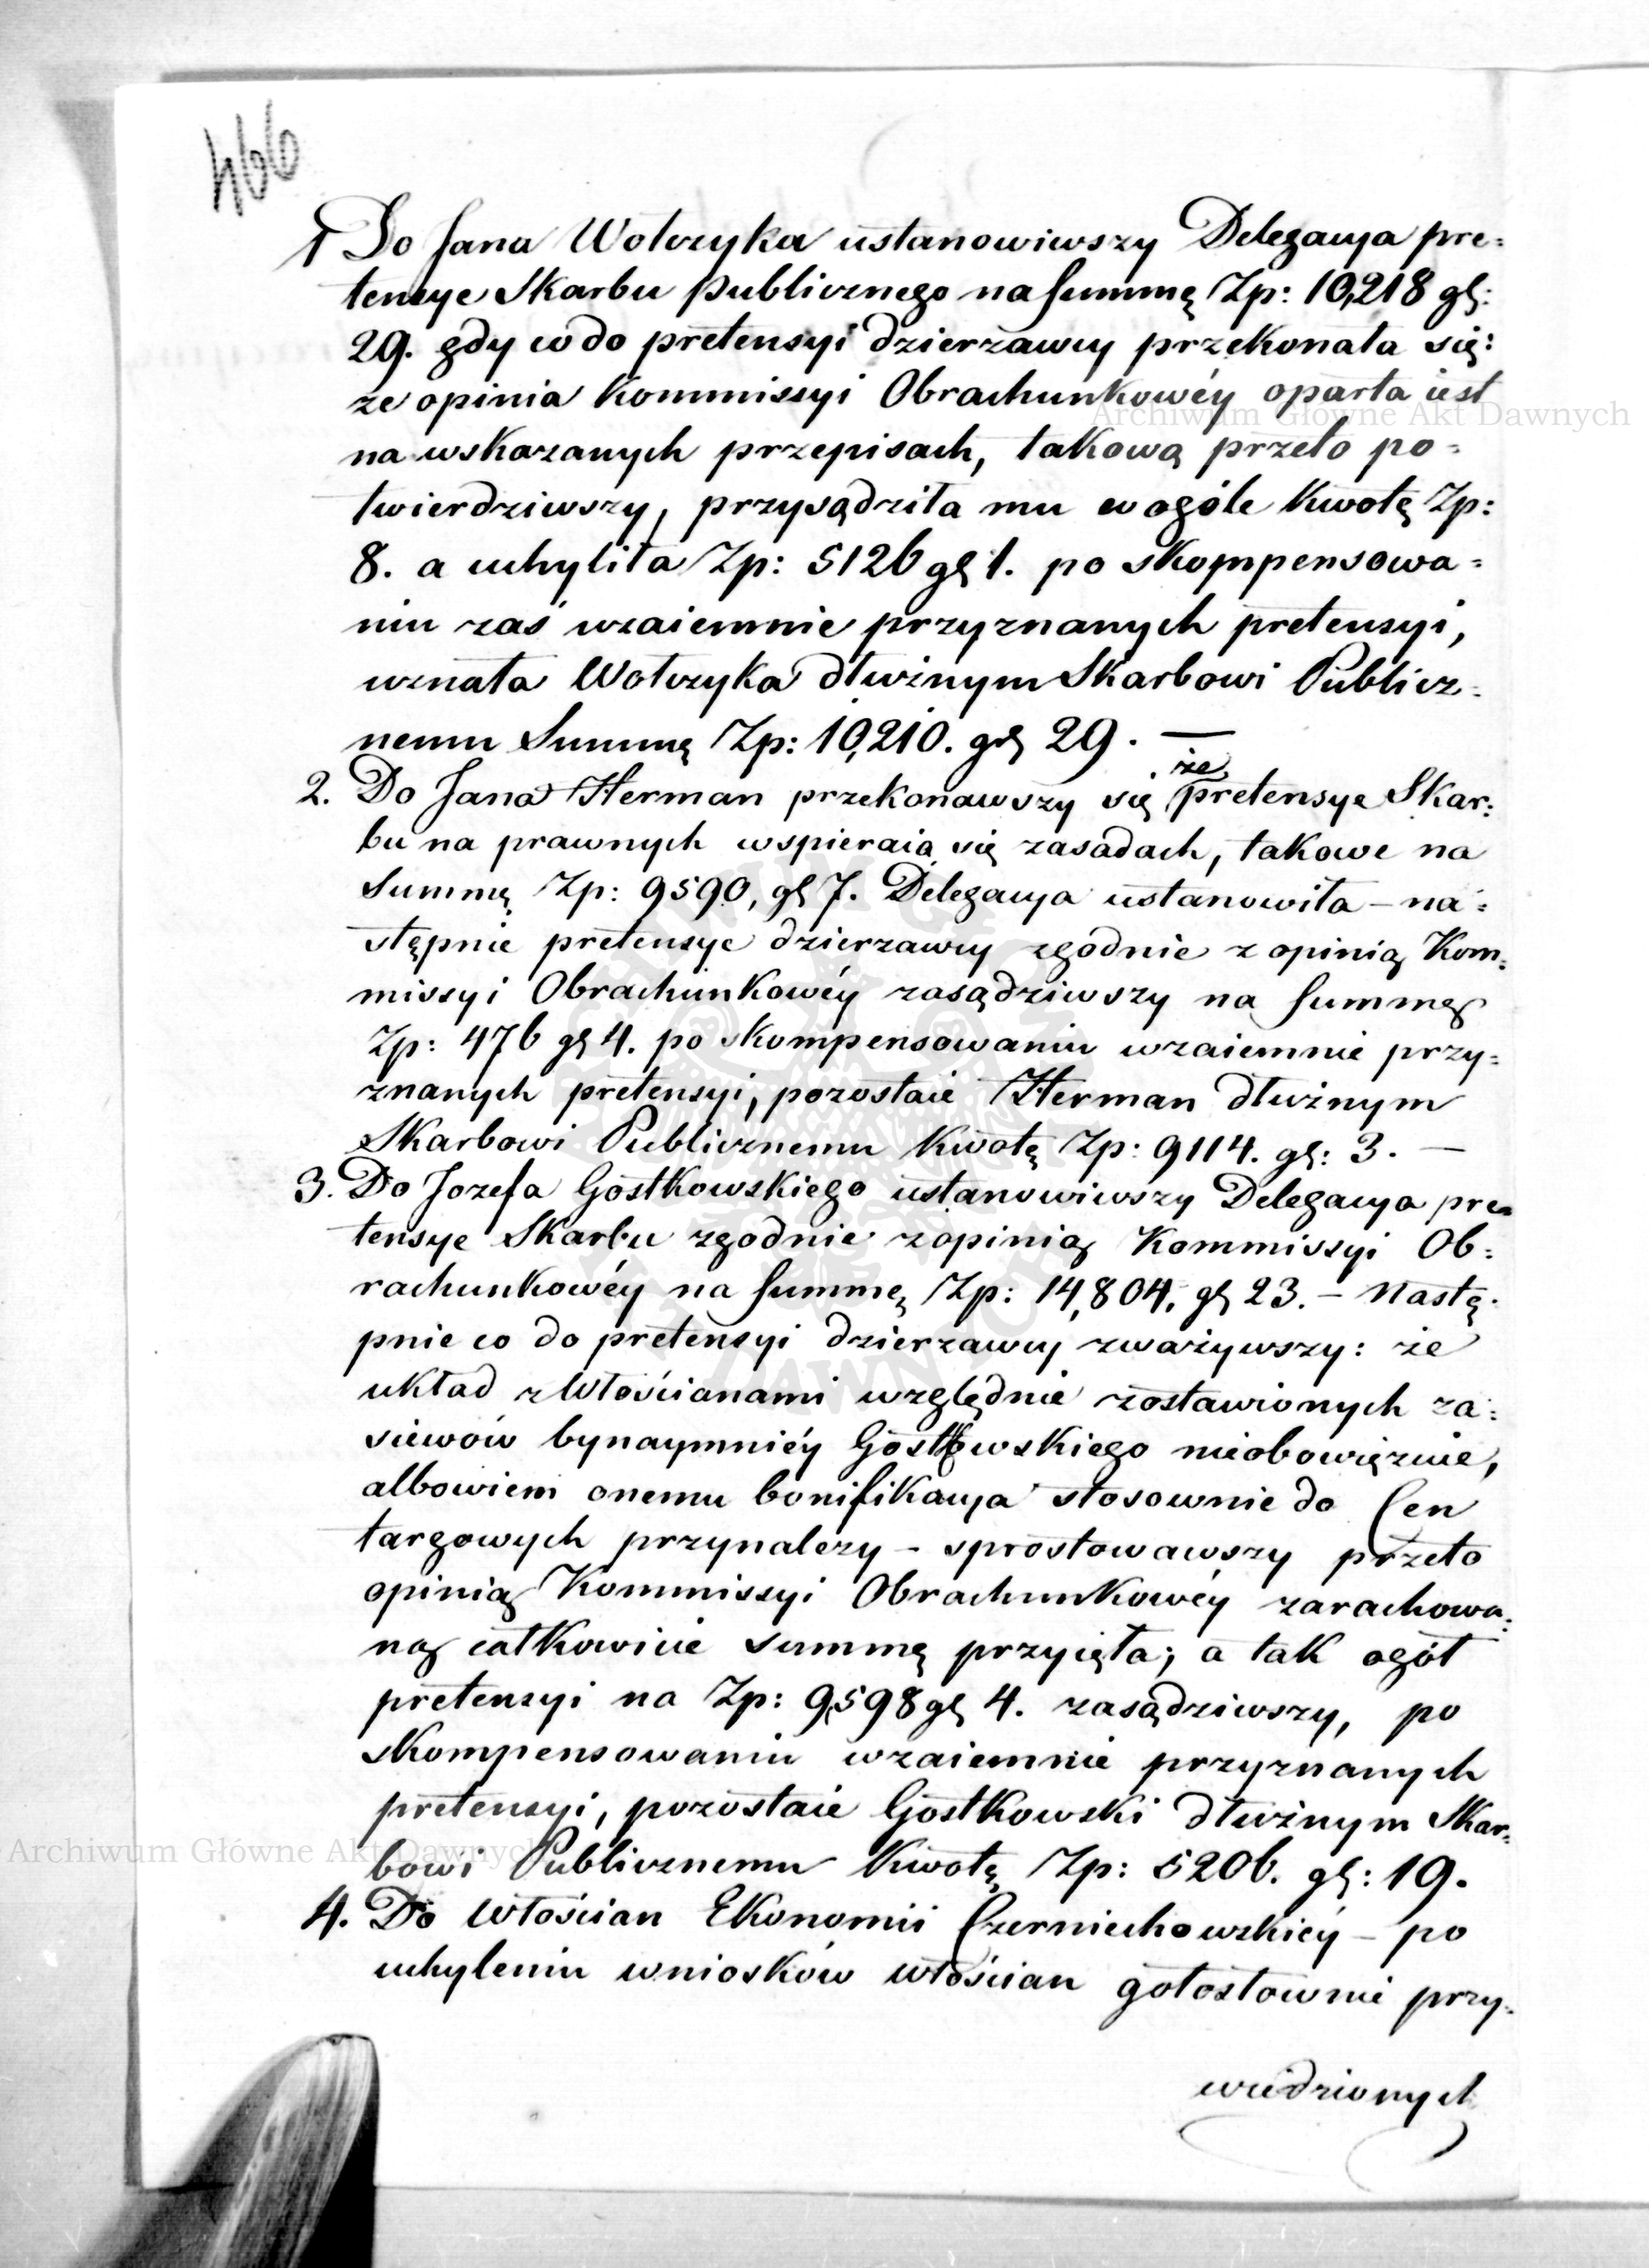 466
1 Do Jana Wolczyka ustanowiwszy Delegacya pre=
tensye Skarbu publicznego na Summę Zp: 10,218 gr:
29. gdy co do pretensyi dzierzawcy przekonała się:
ze opinia Kommissyi Obrachunkowéy oparta iest
na wskazanych przepisach, takową przeto po=
twierdziwszy, przysądziła mu w ogóle Kwotę Zp:
8. a uchyliła Zp: 5126 gr 1. po skompensowa=
niu zaś wzaiemnie przyznanych pretensyi,
uznała Wolczyka dłużnym Skarbowi Publicz=
nemu Summę Zp: 10,210. gr 29. —
2. Do Jana Herman przekonawszy się że pretensye Skar=
bu na prawnych wspieraią się zasadach, takowe na
Summę Zp: 9590, gr 7. Delegacya ustanowiła — na=
stępnie pretensye dzierzawcy zgodnie z opinią Kom=
missyi Obrachunkowéy zasądziwszy na Summę
Zp: 476 gr 4. po skompensowaniu wzaiemnie przy=
znanych pretensyi, pozostaie Herman dłużnym
Skarbowi Publicznemu Kwotę Zp: 9114. gr: 3. —
3. Do Jozefa Gostkowskiego ustanowiwszy Delegacya pre=
tensye Skarbu zgodnie z opinią Kommissyi Ob=
rachunkowéy na Summę Zp: 14,804, gr 23. — Nastę=
pnie co do pretensyi dzierzawcy zważywszy: że
układ z Włościanami względnie zostawionych za=
siewów bynaymniéy Gostkowskiego nieobowięzuie,
albowiem onemu bonifikacya stosownie do Cen
targowych przynalezy — sprostowawszy przeto
opinią Kommissyi Obrachunkowéy zarachowa=
ną całkowicie summę przyięła; a tak ogół
pretensyi na Zp: 9,598 gr 4. zasądziwszy, po
skompensowaniu wzaiemnie przyznanych
pretensyi, pozostaie Gostkowski dłużnym Skar=
bowi Publicznemu Kwotę Zp: 5206. gr: 19.
4. Do Włościan Ekonomii Czerniechowskiéy — po
uchyleniu wniosków Włościan gołosłownie przy=
wiedzionych
Archiwum Główne Akt Dawnych
Archiwum Główne Akt Dawnych